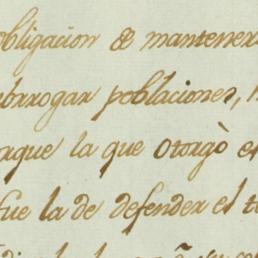 obligacion de mantener
abrrogar poblaciones,
orque la que Otorgò e
fue la de defender el t